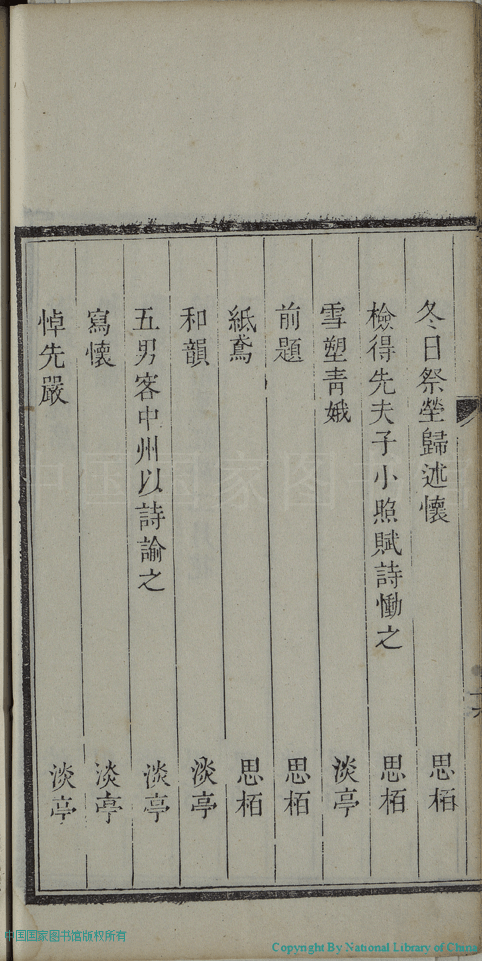 冬日祭塋歸述懷 思栢
檢得先夫子小照賦詩慟之 思栢
雪塑青娥 淡亭
前題 思栢
紙鳶 思栢
和韻 淡亭
五男客中州以詩諭之 淡亭
寫懷 淡亭
悼先嚴 淡亭
中国国家图书馆
中国国家图书馆版权所有
Copyright By National Library of China